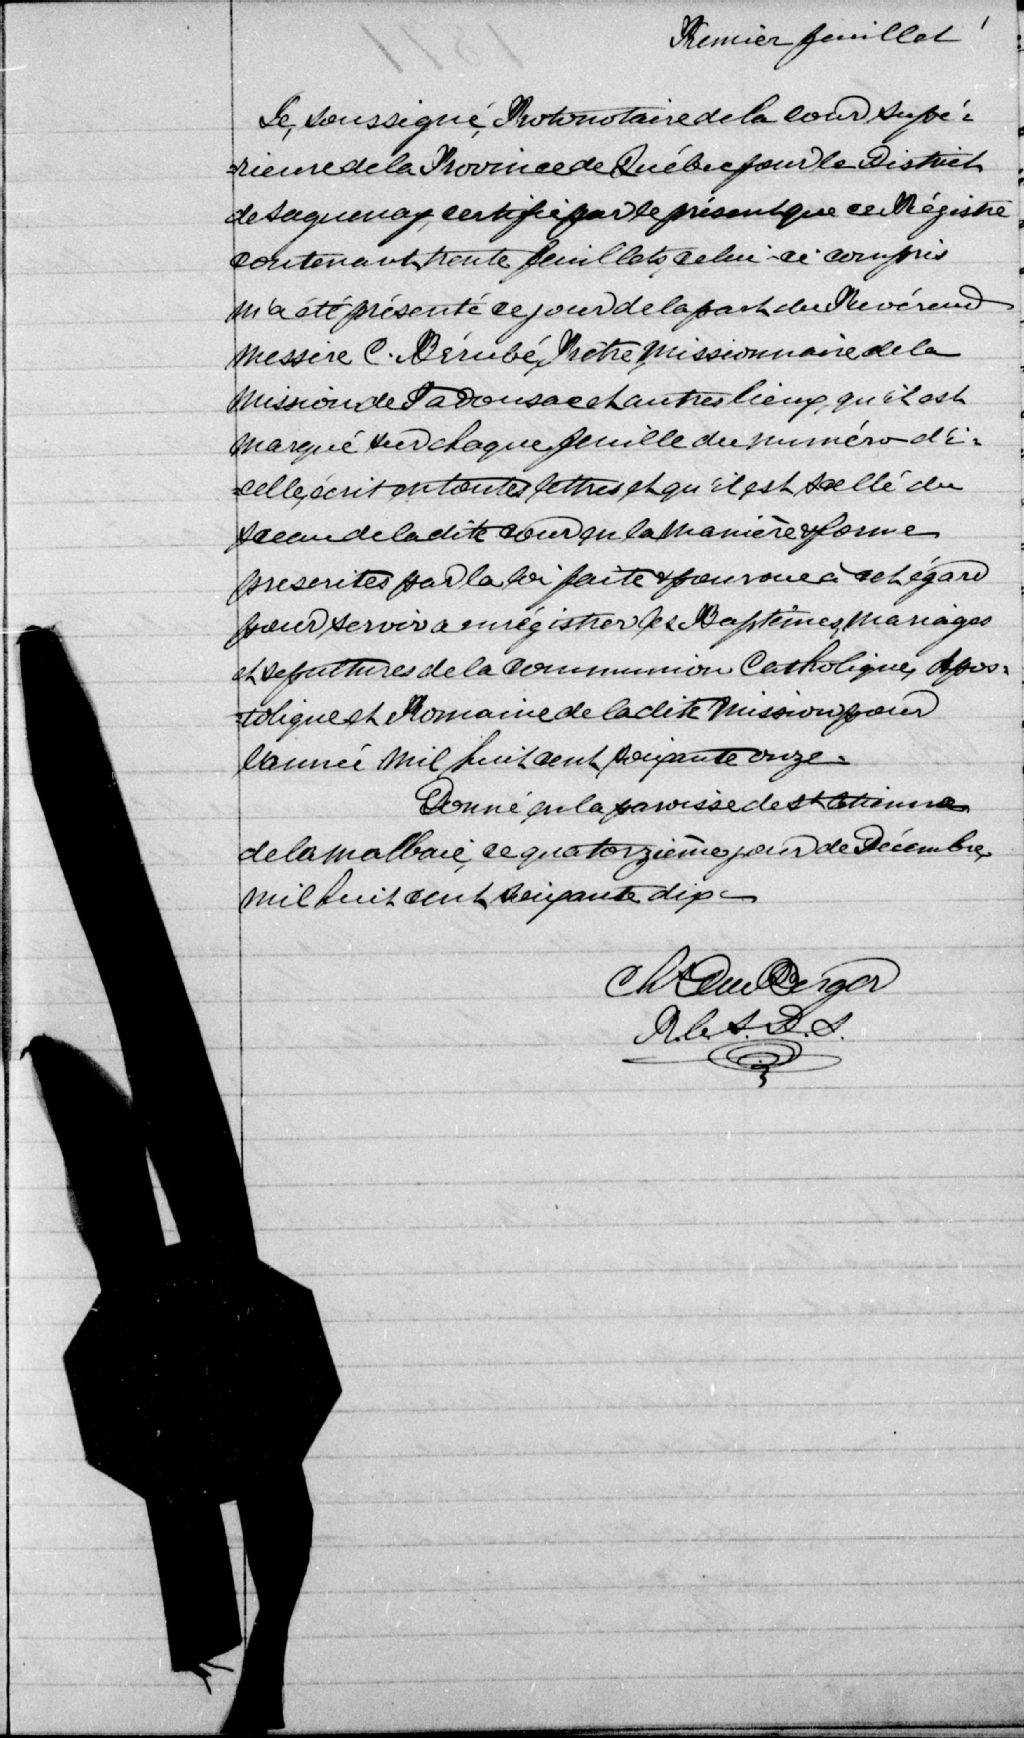 Premier feuillet
Je, soussigné, Protonotaire de la Cour Supé-
-rieure de la Province de Québec pour le District
de Saguenay, certifie par le présent que ce Régistre
contenant trente feuillets celui-ci compris
m'a été présenté ce jour de la part du Révérend
Messire C. Bérubé, Prêtre, Missionnaire de la
Mission de Tadousac et autres lieux, qu'il est
marqué sur chaque feuille du numéro d'i-
-celle, écrit en toutes lettres et qu'il est scellé du
sceau de la dite cour en la manière & forme
prescrites par la loi faite & pourvue à cet égard
pour servir à enrégistrer les Baptêmes, Mariages
et sepultures de la Communion Catholique, Apos-
-tolique et Romaine de la dite Mission pour
l'année mil huit cent soixante onze.
Donné en la paroisse de St Etienne
de la Malbaie, ce quatorzième jour de Décembre
mil huit cent soixante dix
Chs Du Berger
P. C. S. D. S.